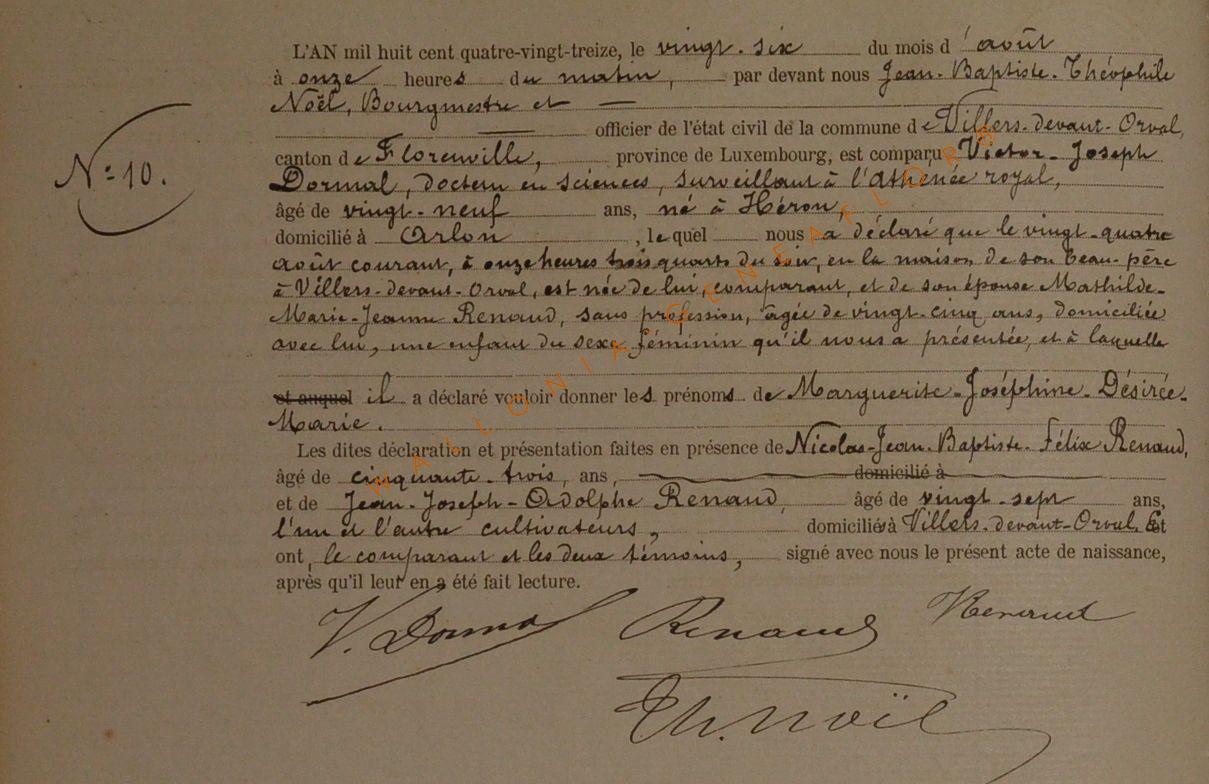 L'AN mil huit cent quatre-vingt-treize, le vingt-six du mois d'août
à onze heures du matin, par devant nous Jean-Baptiste-Théophile
Noël, Bourgmestre et —
— officier de l'état civil de la commune de Villers-devant-Orval,
N° 10.
canton de Florenville, province de Luxembourg, est comparu Victor-Joseph
Dormal, docteur en sciences, surveillant à l'athénée royal,
âgé de vingt-neuf ans, né à Héron,
domicilié à Arlon, lequel nous a déclaré que le vingt-quatre
août courant, à onze heures trois quarts du soir, en la maison de son beau-père
à Villers-devant-Orval, est née de lui, comparant, et de son épouse Mathilde-
Marie-Jeanne Renaud, sans profession, âgée de vingt-cinq ans, domiciliée
avec lui, une enfant du sexe féminin qu'il nous a présentée, et à laquelle
et auquel il a déclaré vouloir donner les prénoms de Marguerite-Joséphine-Désirée-
Marie.
Les dites déclaration et présentation faites en présence de Nicolas-Jean-Baptiste-Félix Renaud,
âgé de cinquante-trois, ans, domicilié à
et de Jean-Joseph-Adolphe Renaud, âgé de vingt-sept ans,
l'un et l'autre cultivateurs, domiciliés à Villers-devant-Orval. Et
ont, le comparant et les deux témoins, signé avec nous le présent acte de naissance,
après qu'il leur en a été fait lecture.
V. Dormal Renaud Renaud
Th. Noël
WALLONIA GENEAFLORE